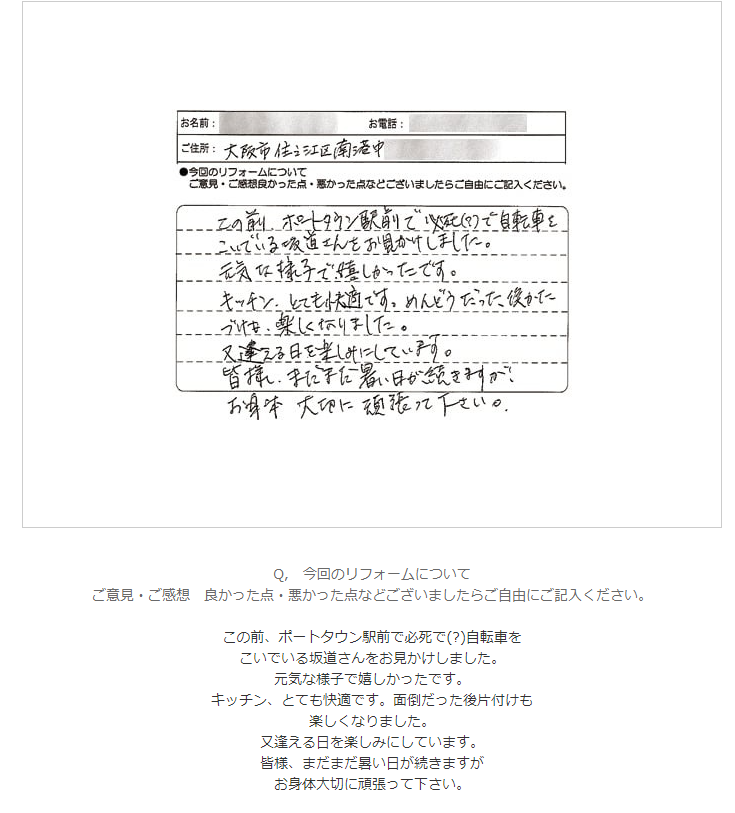 お名前：
お電話：
ご住所： 大阪市住之江区南港中
●今回のリフォームについて
ご意見・ご感想良かった点・悪かった点などございましたらご自由にご記入ください。
この前、ポートタウン駅前で必死(?)で自転車を
こいでいる坂道さんをお見かけしました。
元気な様子で嬉しかったです。
キッチン、とても快適です。めんどうだった、後かた
づけも、楽しくなりました。
又逢える日を楽しみにしています。
皆様、まだまだ暑い日が続きますが、
お身体 大切に頑張って下さい。
Q,　今回のリフォームについて
ご意見・ご感想　良かった点・悪かった点などございましたらご自由にご記入ください。
この前、ポートタウン駅前で必死で(?)自転車を
こいでいる坂道さんをお見かけしました。
元気な様子で嬉しかったです。
キッチン、とても快適です。面倒だった後片付けも
楽しくなりました。
又逢える日を楽しみにしています。
皆様、まだまだ暑い日が続きますが
お身体大切に頑張って下さい。